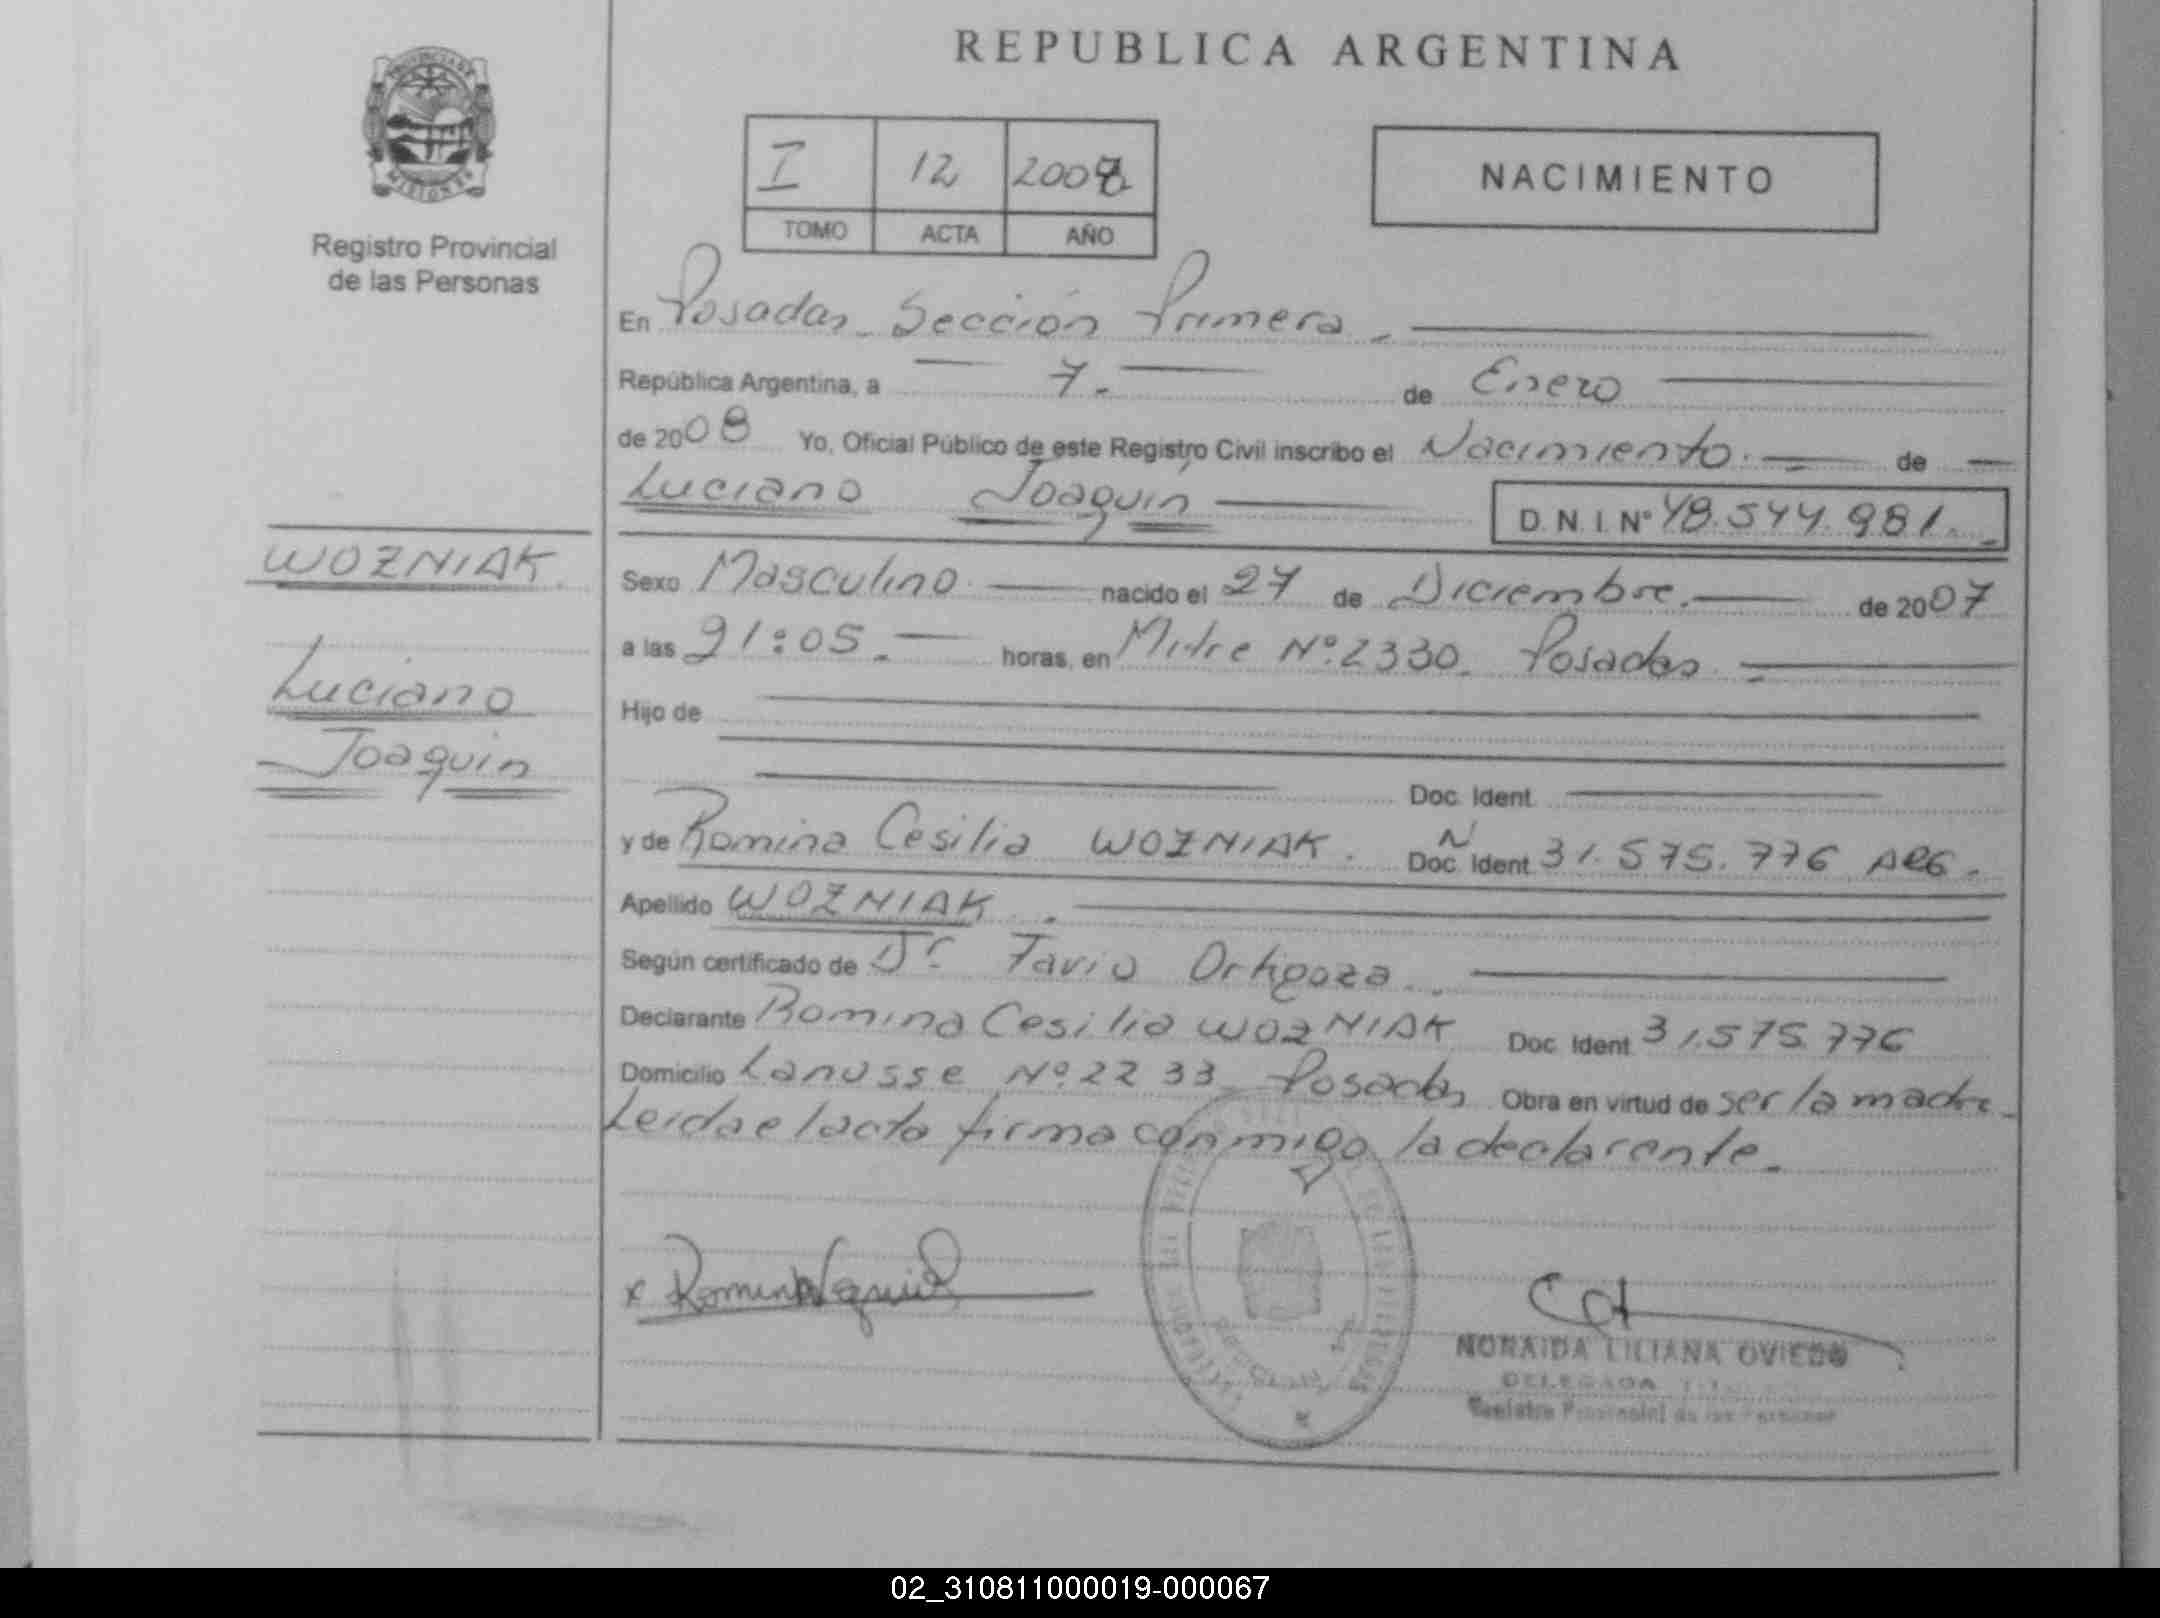 REPUBLICA ARGENTINA
PROVINCIA DE
MISIONES
Registro Provincial
de las Personas
I 12 2008
TOMO ACTA AÑO
NACIMIENTO
En Posadas. Sección Primera.
República Argentina, a 7. de Enero
de 2008 Yo, Oficial Público de este Registro Civil inscribo el Nacimiento. de
Luciano Joaquín D.N.I.Nº 48.544.981.
WOZNIAK.
Luciano
Joaquín
Sexo Masculino nacido el 27 de Diciembre. de 2007
a las 21:05. horas, en Mitre Nº.2330. Posadas
Hijo de
Doc. Ident.
y de Romina Cesilia WOZNIAK. N
Doc. Ident. 31.575.776 ARG.
Apellido WOZNIAK.
Según certificado de Dr. Favio Ortigoza.
Declarante Romina Cesilia WOZNIAK Doc. Ident. 31.575.776
Domicilio Lanusse Nº.2233. Posadas Obra en virtud de ser la madre.
Leida el acta firma conmigo la declarante.
x Romina
NORAIDA LILIANA OVIEDO
DELEGADA
Registro Provincial de las Personas
02_310811000019-000067